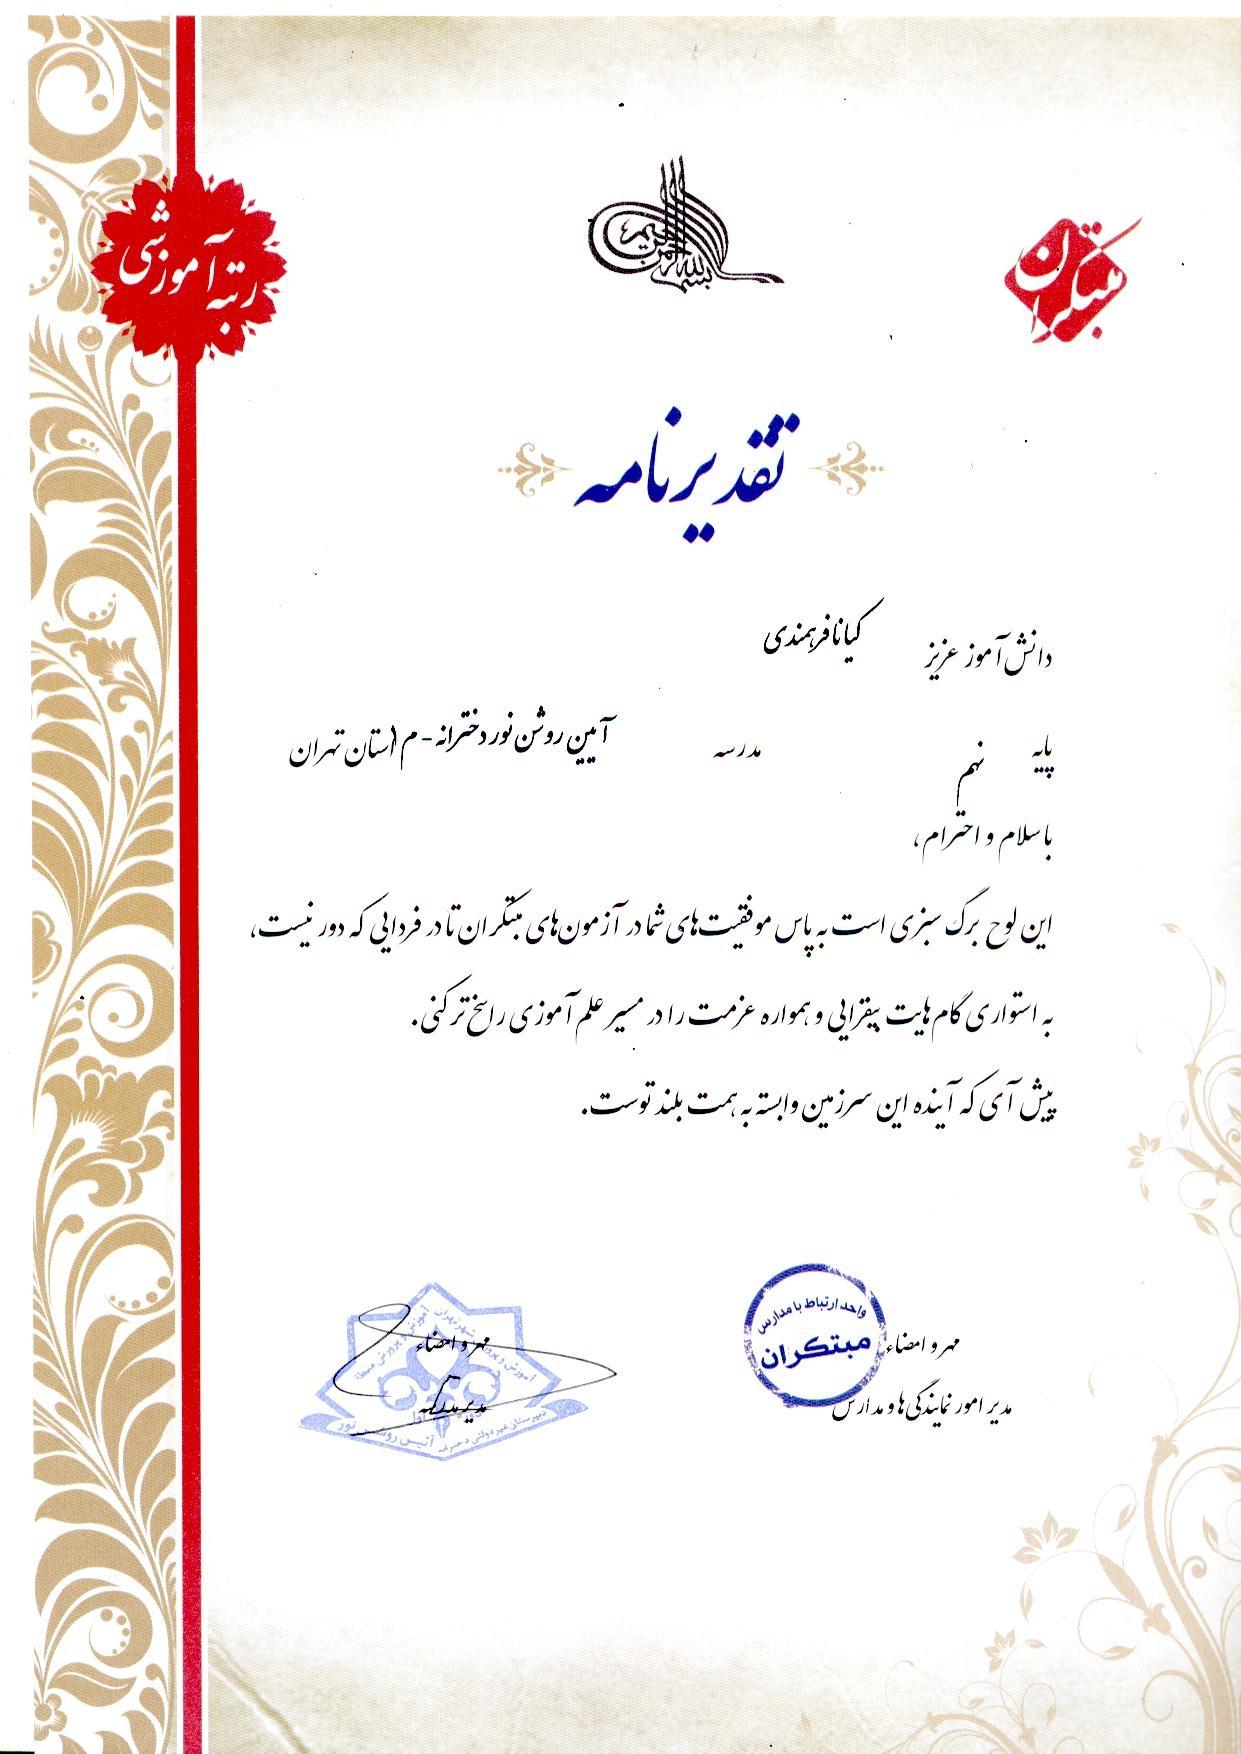 بسم الله الرحمن الرحیم
مبتکران
رتبه آموزشی
تقدیرنامه
دانش آموز عزیز کیانا فرهمندی
پایه نهم مدرسه آیین روشن نور دخترانه - م ۱ استان تهران
با سلام و احترام،
این لوح برگ سبزی است به پاس موفقیت‌های شما در آزمون‌های مبتکران تا در فردایی که دور نیست،
به استواری گام‌هایت بیفزایی و همواره عزمت را در مسیر علم آموزی راسخ تر کنی.
پیش آی که آینده این سرزمین وابسته به همت بلند توست.
واحد ارتباط با مدارس
مبتکران
مهر و امضاء
مدیر امور نمایندگی ها و مدارس
مهر و امضاء
مدیر مدرسه